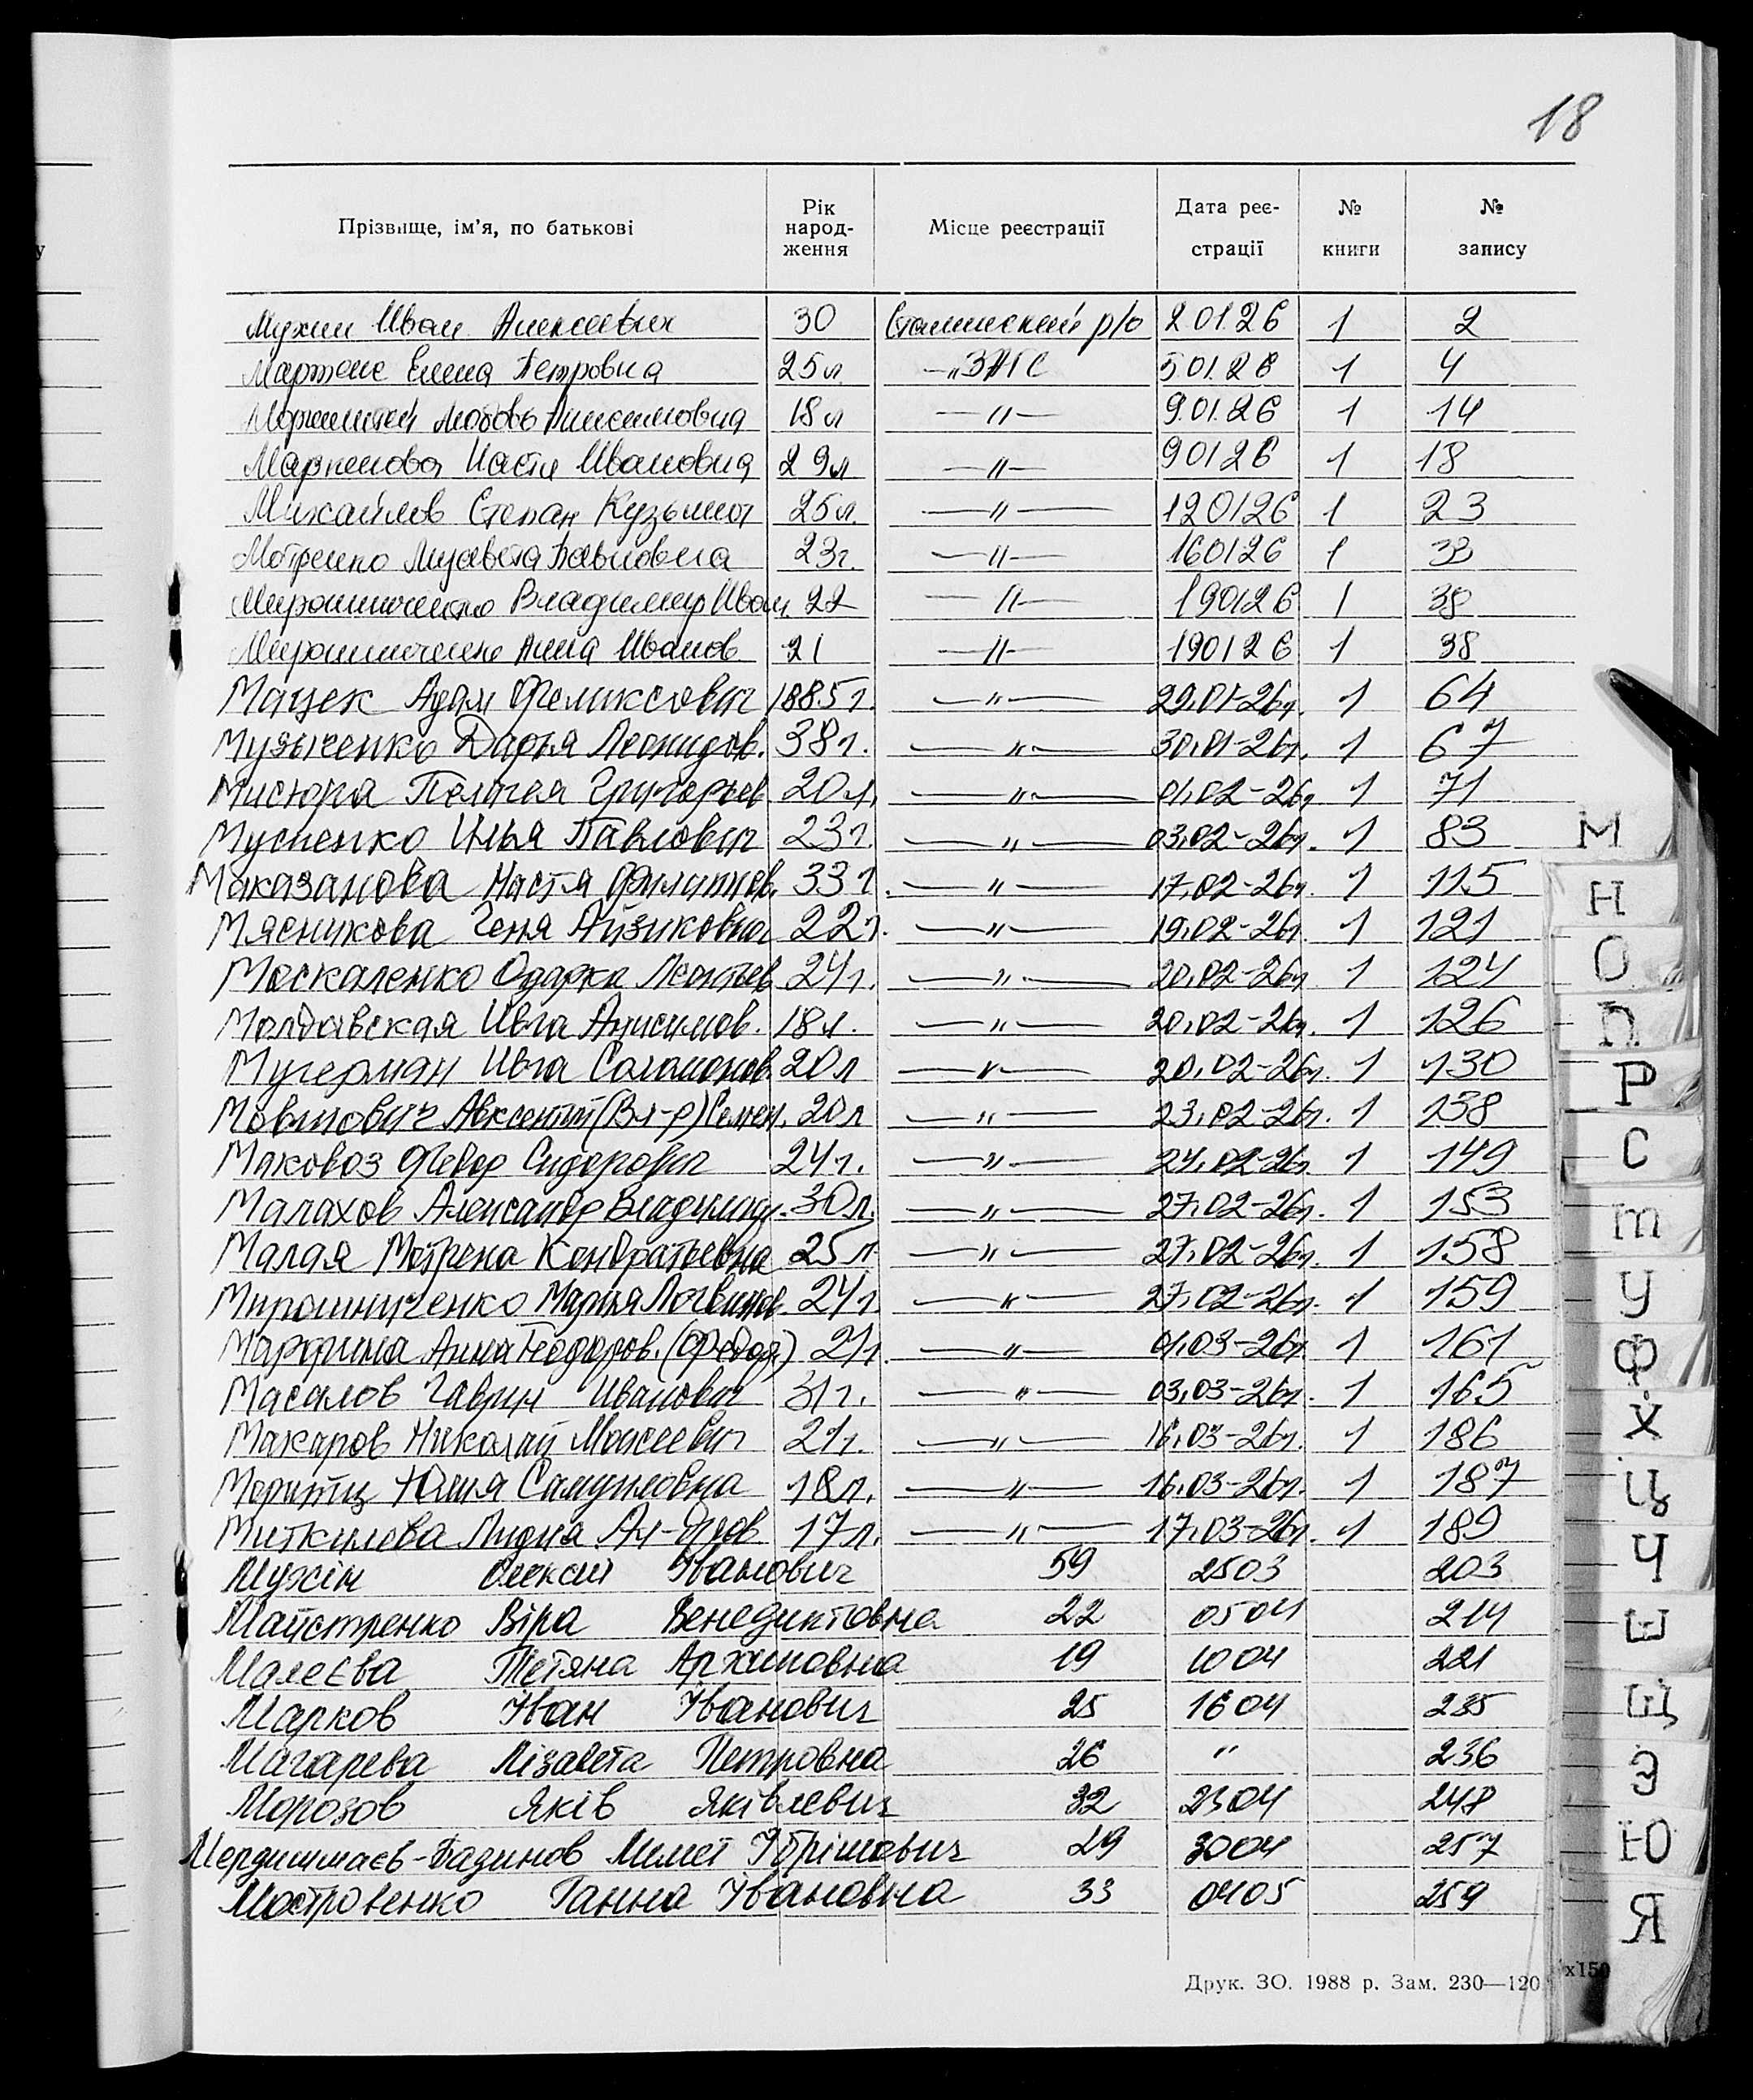 18
Прізвище, ім'я, по батькові | Рік народ-ження | Місце реєстрації | Дата реє-страції | № книги | № запису
Мухин Иван Алексеевич 30 Сталинский р/о 2 01 26 1 2
Мартенс Елена Петровна 25 л. —"ЗАГС 5 01. 26 1 4
Любовь Анисимовна 18 л —"— 9.01.26 1 14
Настя Ивановна 29 л —"— 9 01 26 1 18
Михайлов Степан Кузьмич 25 л. —"— 12 01 26 1 23
Мотренко Лизавета Павловна 23 г. —"— 16 01 26 1 33
Мирошниченко Владимир Иван. 22 —"— 19 01 26 1 38
Мирошниченко Анна Иванов. 21 —"— 19 01 26 1 38
Мацек Адам Феликсович 1885 г. —"— 29.01-26г. 1 64
Музыченко Дарья Леонидов. 38 г. —"— 30.01-26г. 1 67
Мисюра Пелагея Григорьев 20 л. —"— 01.02-26г 1 71
Мусиенко Илья Павлович 23 г. —"— 03.02-26г. 1 83
Маказанова Настя Филиппов. 33 г. —"— 17.02-26г. 1 115
Мясникова Геня Айзиковна 22 г. —"— 19.02-26г. 1 121
Москаленко Одарка Леонтьев 24 г. —"— 20.02-26г 1 124
Молдавская Ивга Анисимов. 18 л. —"— 20.02-26г. 1 126
Мугерман Ивга Соломонов. 20 л —"— 20.02-26г. 1 130
Мовшович Авксентий (Вл-р) Семен. 20 л —"— 23.02-26г. 1 138
Маковоз Федор Сидорович 24 г. —"— 24.02-26г. 1 149
Малахов Александр Владимир. 30 л. —"— 27.02-26г. 1 153
Малая Мотрена Кондратьевна 25 л —"— 27.02-26г. 1 158
Мирошниченко Мария Логвинов. 24 г. —"— 27.02-26г. 1 159
Марфина Анна Теодоров. (Федор.) 21 г. —"— 01.03-26г. 1 161
Масалов Гаврил Иванович 31 г. —"— 03.03-26г. 1 165
Макаров Николай Моисеевич 21 г. —"— 16.03-26г. 1 186
Моритц Юлия Самуиловна 18 л. —"— 16.03-26г. 1 187
Миткилева Лидия Ал-дров 17 л. —"— 17.03-26г. 1 189
Мухін Олексій Іванович 59 2503 203
Майстренко Віра Венедиктовна 22 0504 214
Малєєва Тетяна Архиповна 19 1004 221
Марков Іван Іванович 25 1604 235
Магарева Лізавета Петровна 26 " 236
Морозов Яків Яківлевич 32 2304 248
Мемет Ібрімович 29 3004 257
Ганна Івановна 33 0405 259
М
Н
О
П
Р
С
Т
У
Ф
Х
Ц
Ч
Ш
Щ
Э
Ю
Я
Друк. ЗО. 1988 р. Зам. 230—120 х150